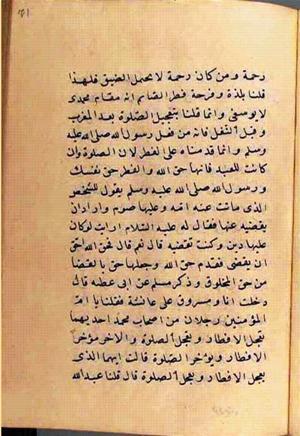 ٧١
رحمة ومن كان رحمة لا يحتمل الضيق فلهذا
قلنا بلذة وفرحة فطر الصايم انه مقام محمدى
لا يوسفى وانما قلنا بتعجيل الصلوة بعد المغرب
وقبل التنفل فانه من فعل رسول الله صلى الله عليه
وسلم وانما قدمناه على الفطر لان الصلوة وان
كانت للعبد فانها حق الله والفطر حق نفسك
ورسول الله صلى الله عليه وسلم يقول للشخص
الذى ماتت عنه امه وعليها صوم واراد ان
يقضيه عنها فقال له عليه السلام ارايت لو كان
عليها دين وكنت تقضيه قال نعم قال فحق الله احق
ان يقضى فقدم حق الله وجعلها حق بالقضا
من حق المخلوق وذكر مسلم عن ابى عطية قال
دخلت انا ومسروق على عائشة فقلنا يا ام
المؤمنين رجلان من اصحاب محمد احدهما
يعجل الافطار ويعجل الصلوة والاخر يؤخر
الافطار ويؤخر الصلوة قالت ايهما الذى
يعجل الافطار ويعجل الصلوة قال قلنا عبد الله